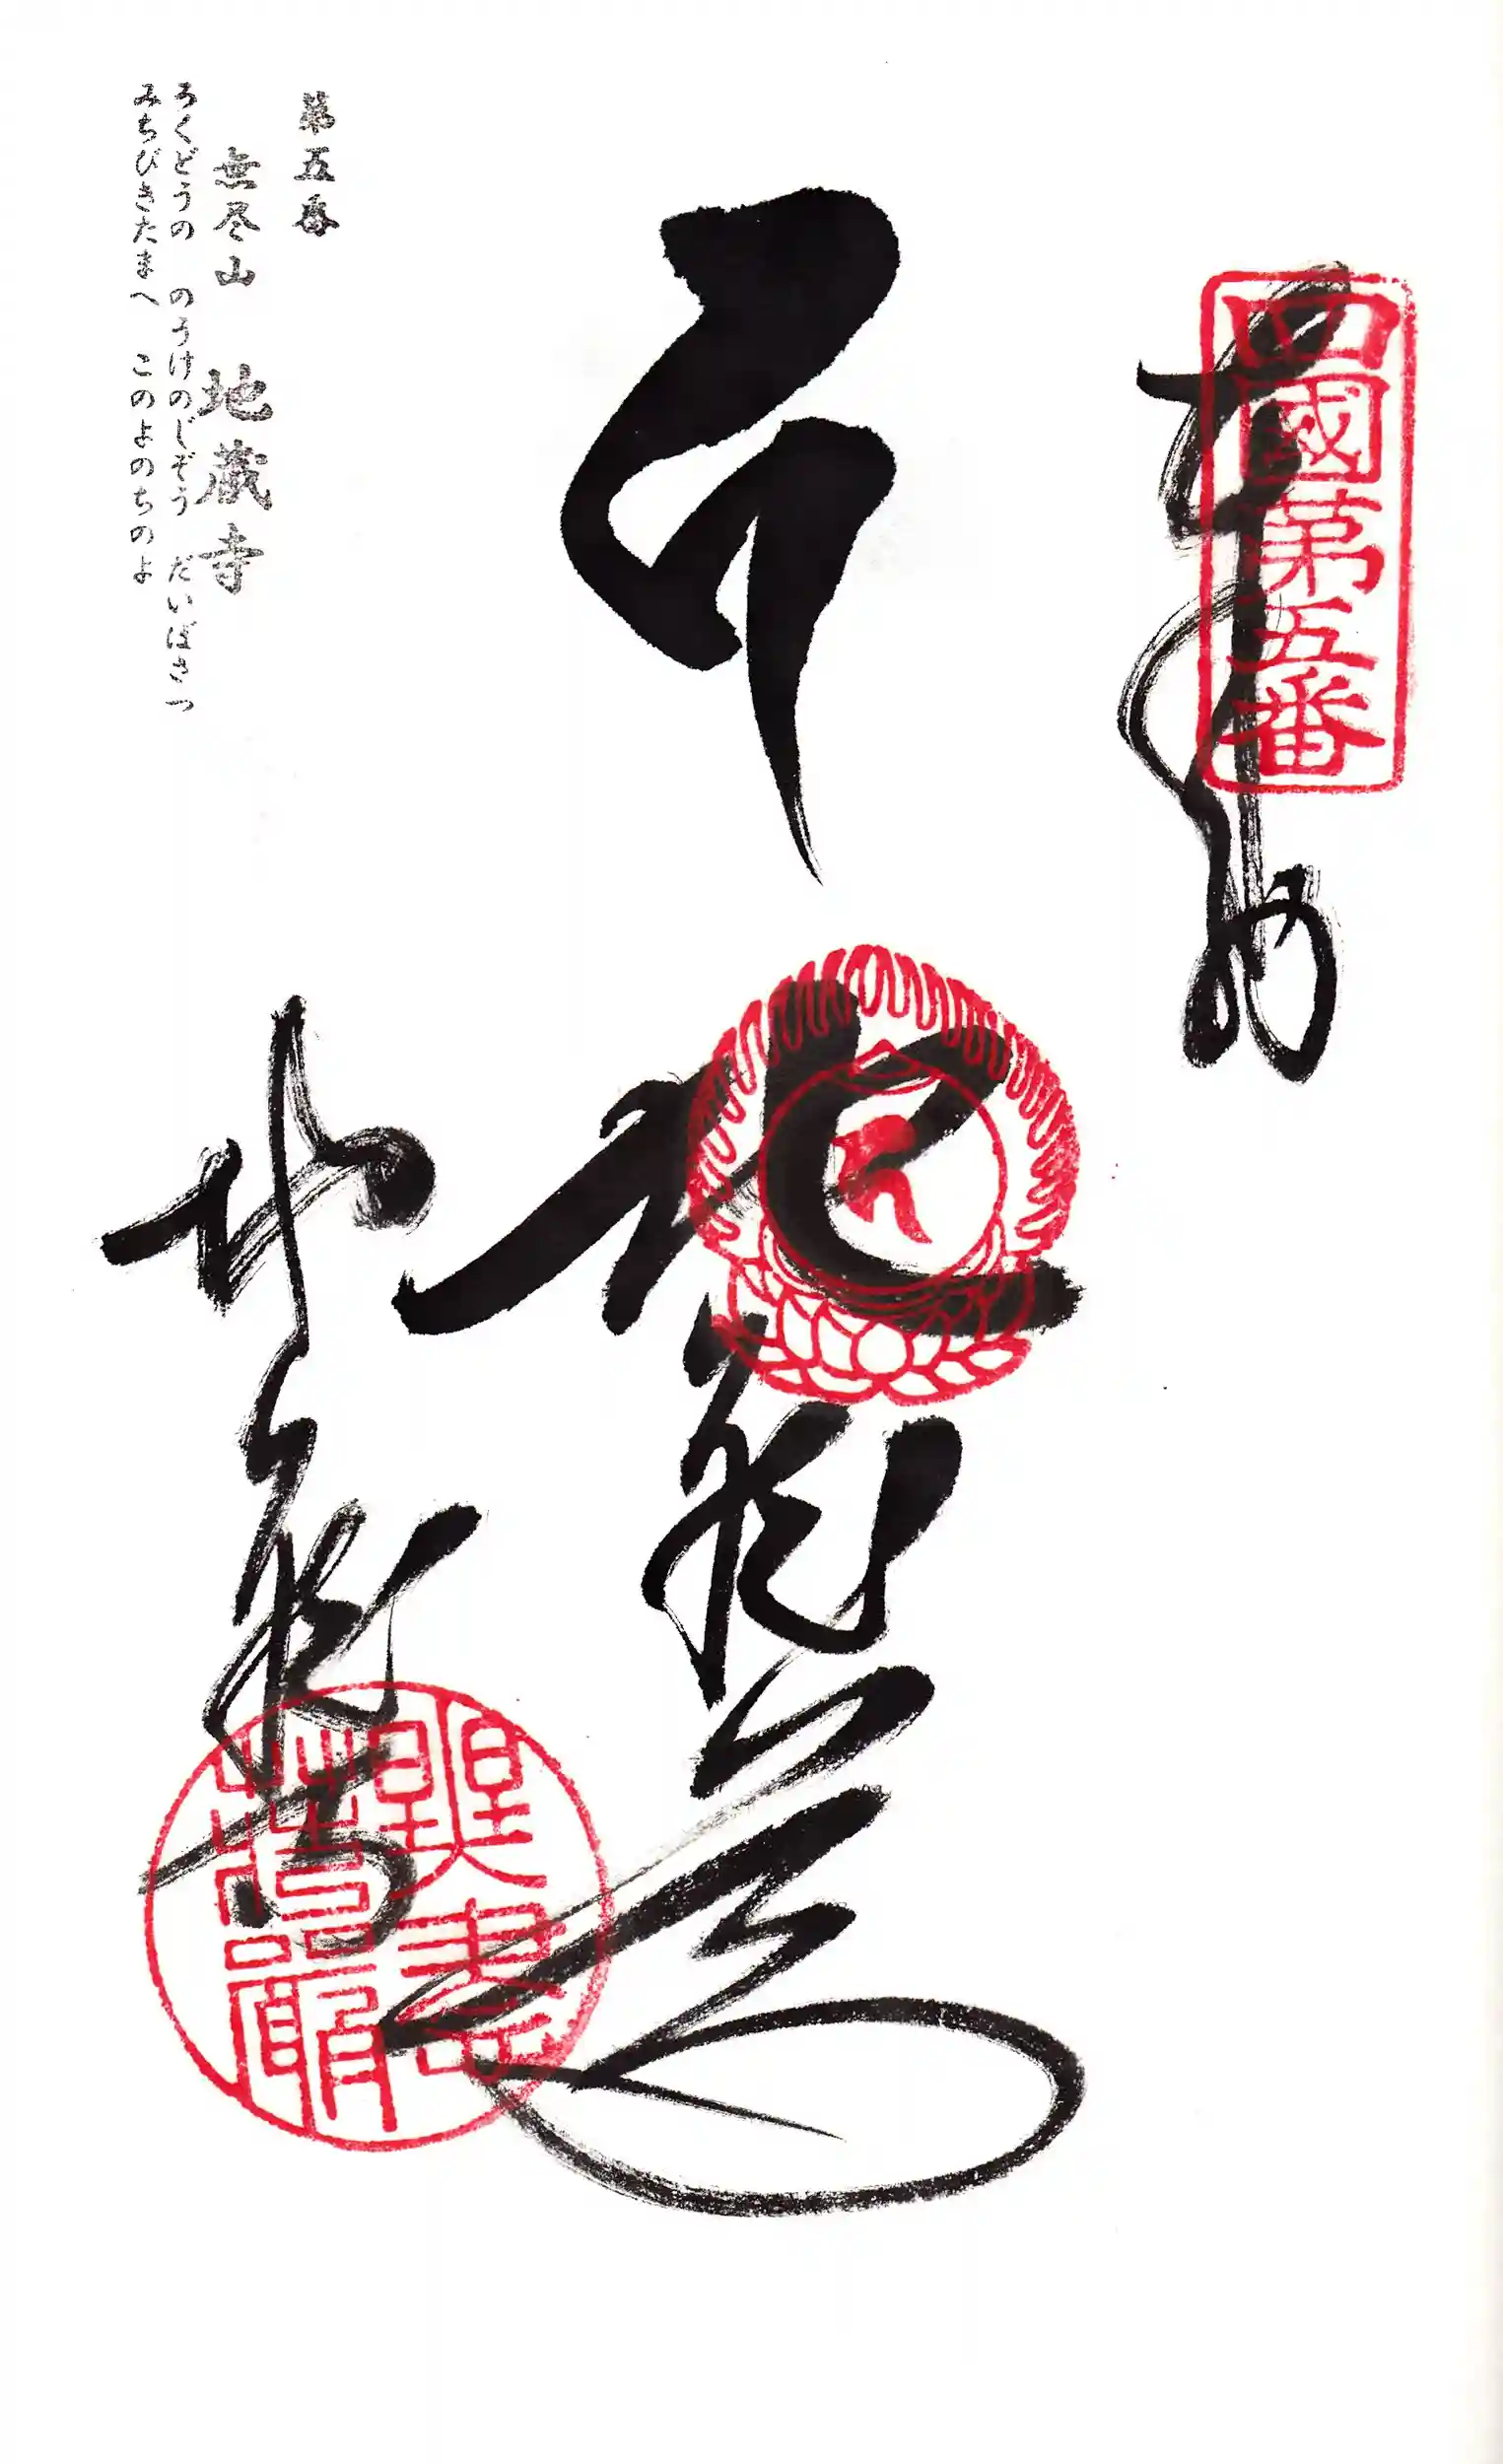 四國第五番
奉納
地蔵
地蔵寺
莊嚴
第五番
無尽山 地蔵寺
ろくどうの のうけのじぞう だいぼさつ
みちびきたまへ このよのちのよ